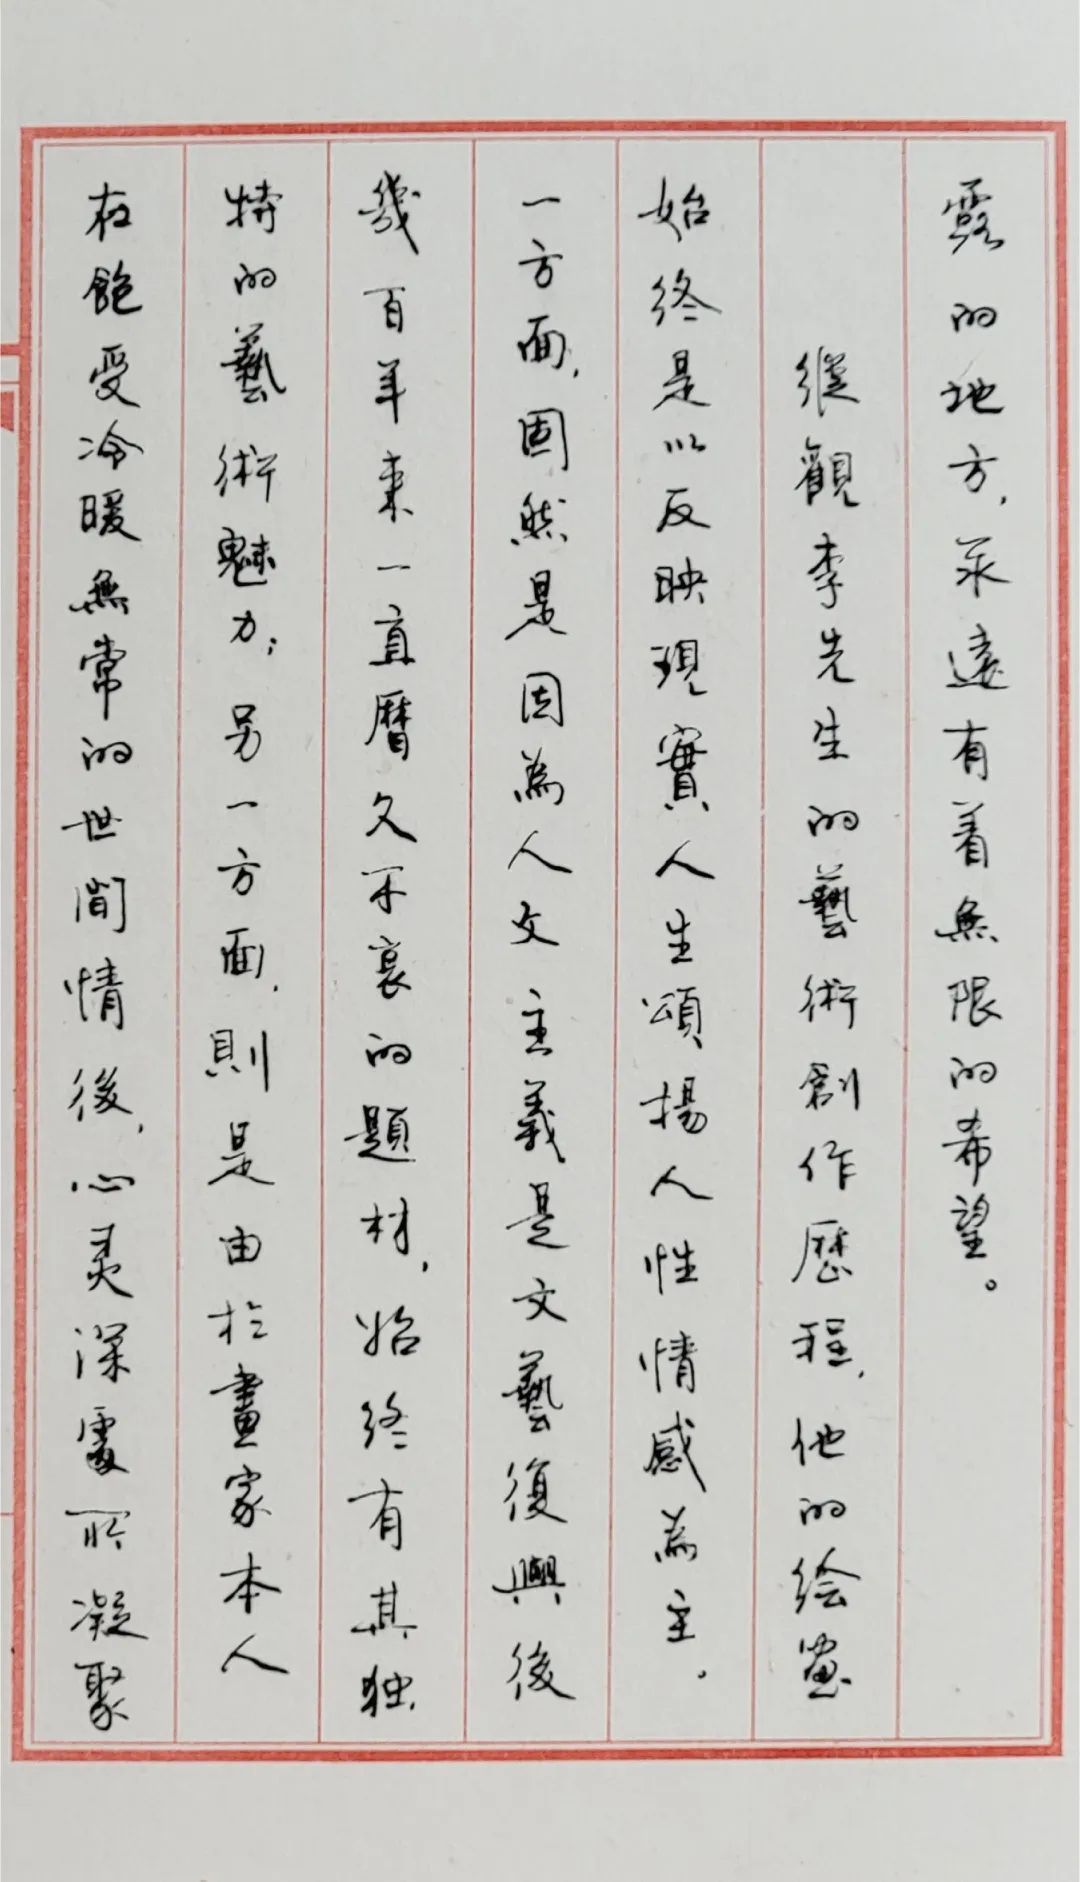 露的地方，永遠有着無限的希望。
縱觀李先生的藝術創作歷程，他的绘畫
始終是以反映現實人生頌揚人性情感為主。
一方面，固然是因為人文主義是文藝復興後
幾百年來一直曆久不衰的題材，始终有其独
特的藝術魅力；另一方面，則是由於畫家本人
在飽受冷暖無常的世間情後，心灵深處所凝聚